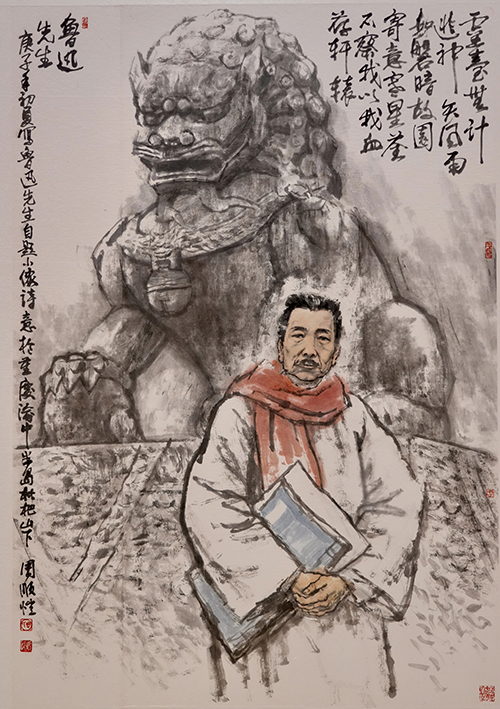 灵臺無计
逃神矢风雨
如磐暗故園
寄意寒星荃
不察我以我血
荐轩辕
鲁迅
先生
庚子年初夏写鲁迅先生自题小像诗意於重慶渝中半岛枇杷山下 周顺恺